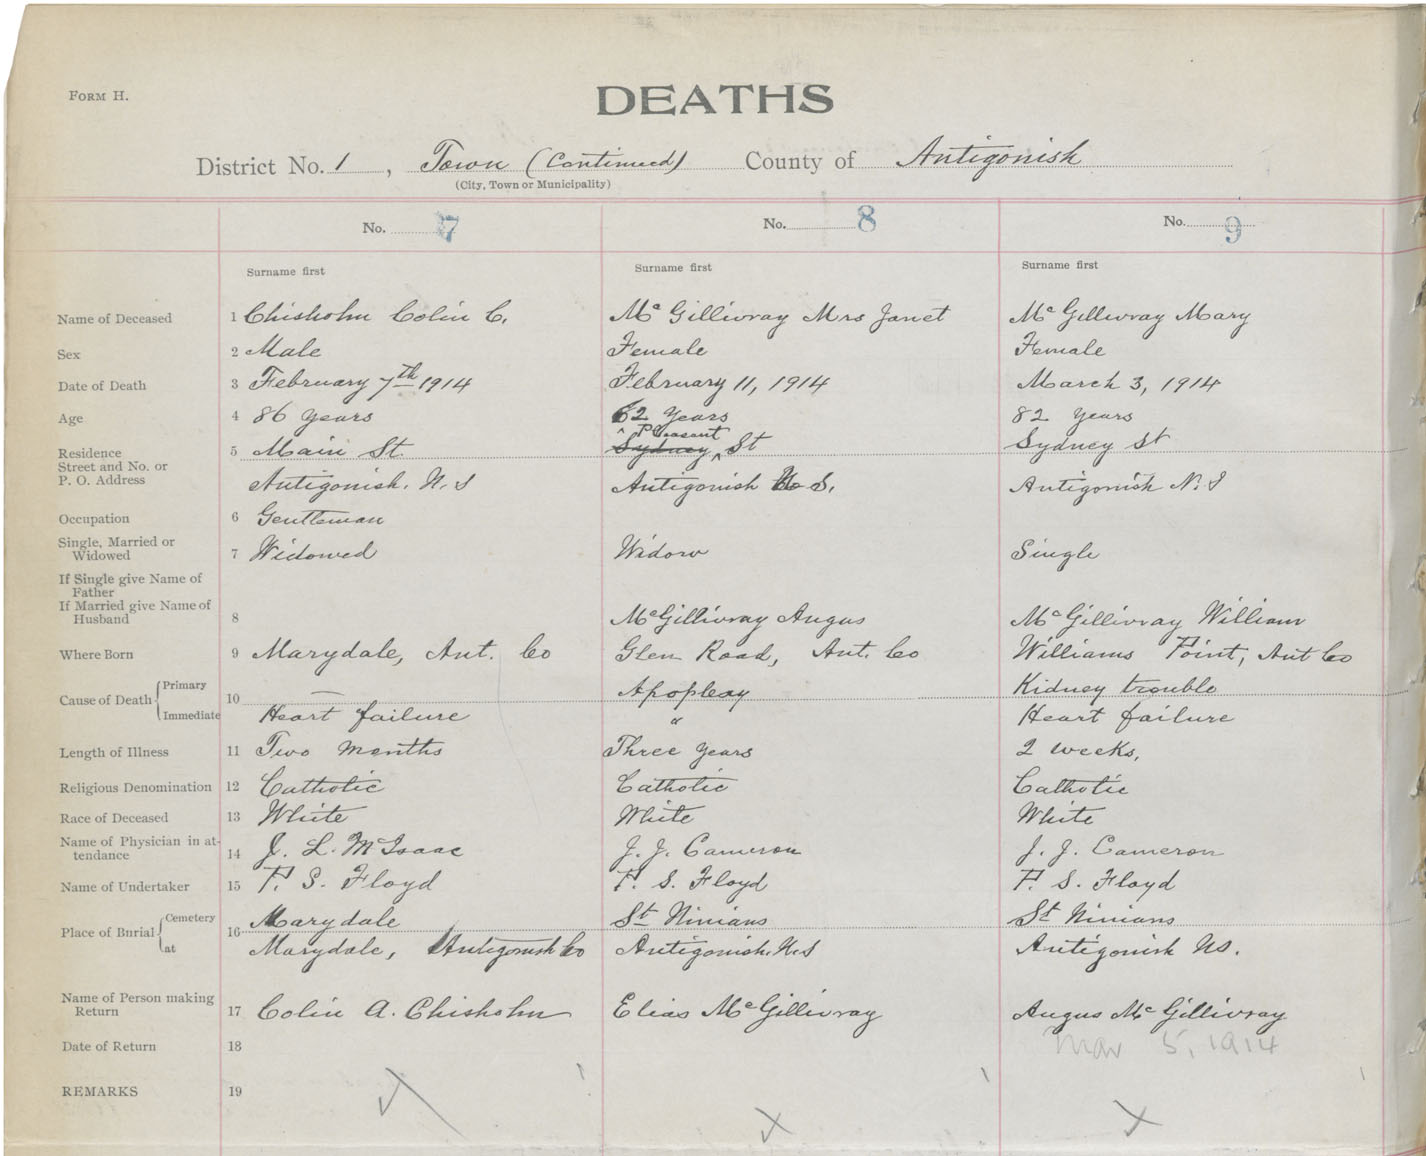 FORM H.
DEATHS
District No. 1, Town (Continued) County of Antigonish
(City, Town or Municipality)
No. 7 No. 8 No. 9
Surname first Surname first Surname first
Name of Deceased 1 Chisholm Colin C. McGillivray Mrs Janet McGillivray Mary
Sex 2 Male Female Female
Date of Death 3 February 7th 1914 February 11, 1914 March 3, 1914
Age 4 86 years 62 years 82 years
Pleasant
Residence 5 Main St. Sydney St Sydney St
Street and No. or
P. O. Address Antigonish. N.S Antigonish N S. Antigonish N.S
Occupation 6 Gentleman
Single, Married or
Widowed 7 Widowed Widow Single
If Single give Name of
Father
If Married give Name of
Husband 8 McGillivray Angus McGillivray William
Where Born 9 Marydale, Ant. Co Glen Road, Ant. Co Williams Point, Ant Co
Cause of Death Primary 10 — Apoplexy Kidney trouble
Immediate Heart failure " Heart failure
Length of Illness 11 Two months Three years 2 weeks,
Religious Denomination 12 Catholic Catholic Catholic
Race of Deceased 13 White White White
Name of Physician in at-
tendance 14 J. L. McIsaac J. J. Cameron J. J. Cameron
Name of Undertaker 15 F. S. Floyd F. S. Floyd F. S. Floyd
Place of Burial Cemetery 16 Marydale St Ninians St Ninians
at Marydale, Antigonish Co Antigonish. N.S Antigonish NS.
Name of Person making
Return 17 Colin A. Chisholm Elias McGillivray Angus McGillivray
Date of Return 18 Mar 5, 1914
REMARKS 19